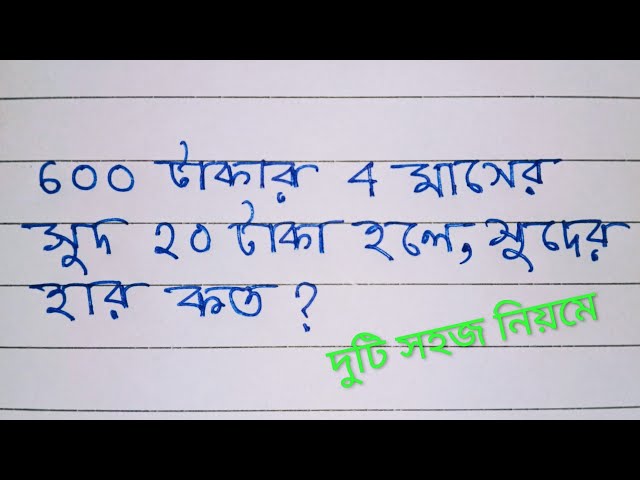 ৬০০ টাকার ৫ মাসের
সুদ ২০ টাকা হলে, সুদের
হার কত ?
দুটি সহজ নিয়মে